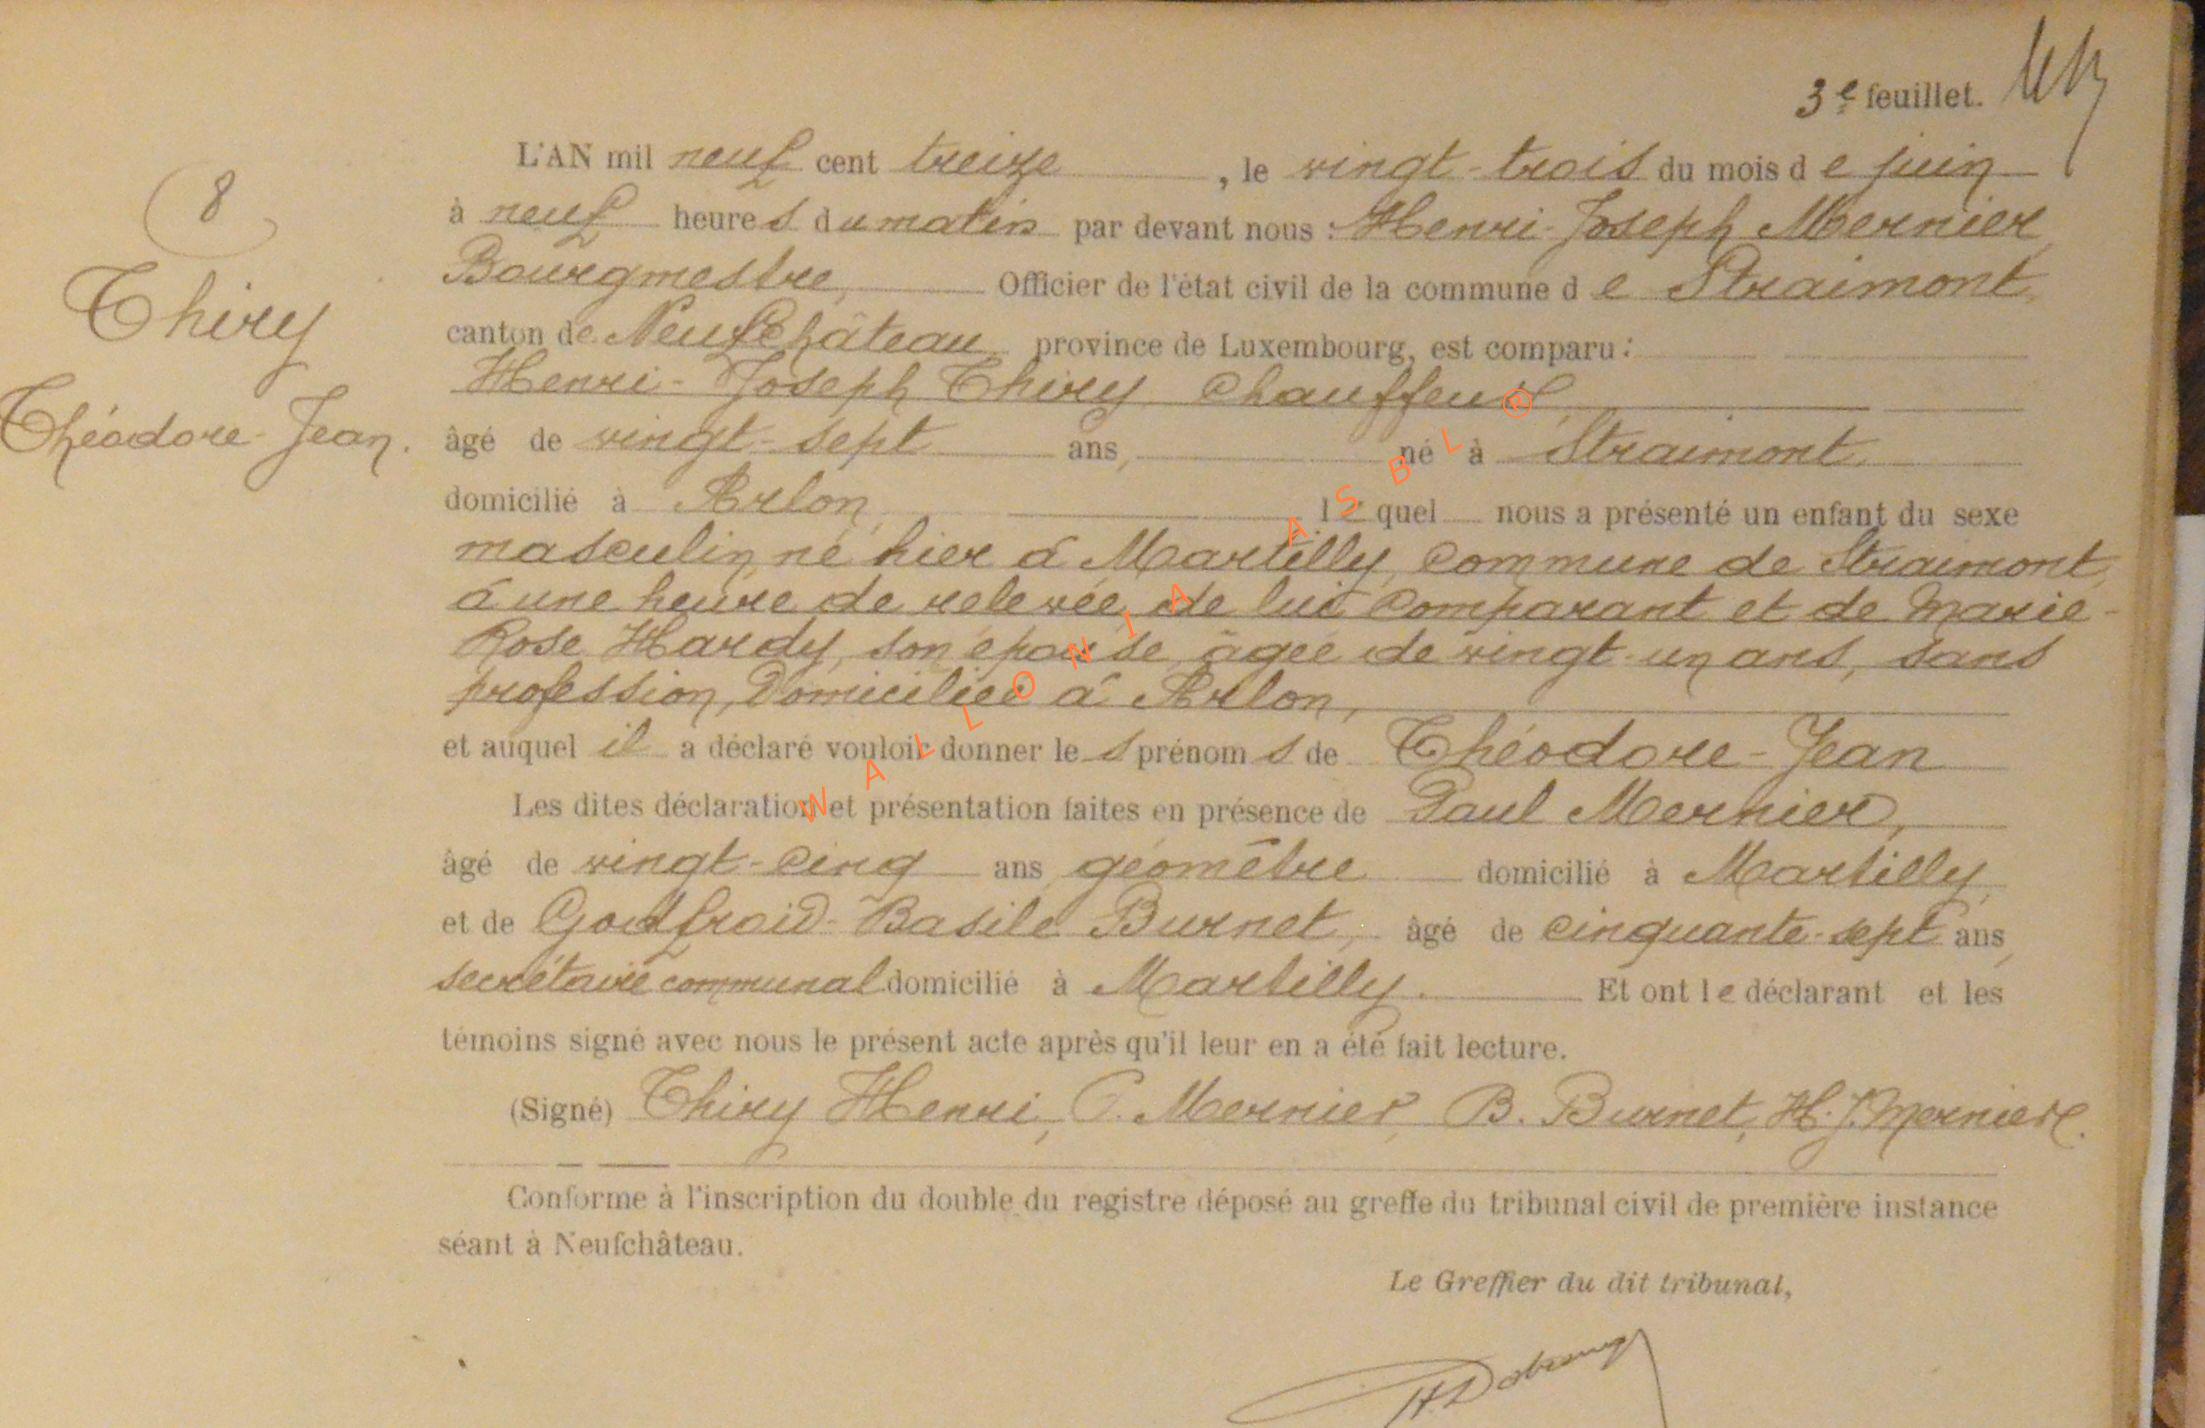 3e feuillet.
8
Thiry
Théodore-Jean.
L'AN mil neuf cent treize , le vingt-trois du mois de juin
à neuf heures du matin par devant nous : Henri-Joseph Mernier
Bourgmestre, Officier de l'état civil de la commune de Straimont,
canton de Neufchâteau province de Luxembourg, est comparu :
Henri-Joseph Thiry chauffeur,
âgé de vingt-sept ans, né à Straimont
domicilié à Arlon, lequel nous a présenté un enfant du sexe
masculin, né hier à Martilly, commune de Straimont,
à une heure de relevée, de lui comparant et de Marie-
Rose Hardy, son épouse, âgée de vingt-un ans, sans
profession, domiciliée à Arlon,
et auquel il a déclaré vouloir donner les prénoms de Théodore-Jean
Les dites déclaration et présentation faites en présence de Paul Mernier,
âgé de vingt-cinq ans géomètre domicilié à Martilly,
et de Godfroid-Basile Burnet, âgé de cinquante-sept ans,
secrétaire communal domicilié à Martilly. Et ont le déclarant et les
témoins signé avec nous le présent acte après qu'il leur en a été fait lecture.
(Signé) Thiry Henri, P. Mernier, B. Burnet, H. J. Mernier.
Conforme à l'inscription du double du registre déposé au greffe du tribunal civil de première instance
séant à Neufchâteau.
Le Greffier du dit tribunal,
WALLONIA ASBL ®